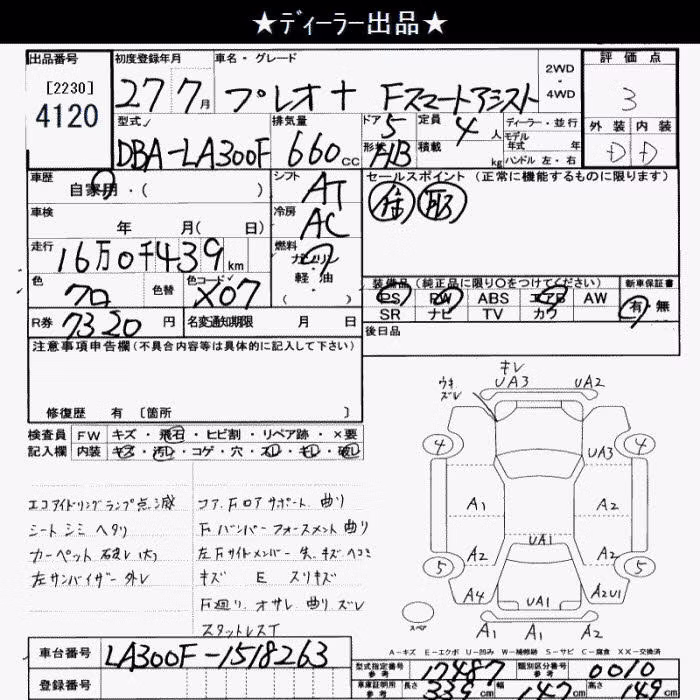 ★ディーラー出品★
出品番号 [2230] 4120
初度登録年月 27年 7月
車名・グレード プレオ+ Fスマートアシスト
2WD・4WD
評価点 3
型式 DBA-LA300F
排気量 660cc
ドア 5 形状 H/B
定員 4人 積載 kg
ディーラー・並行
モデル年式 年
ハンドル 左・右
外装 D 内装 D
車歴 自家用・( )
シフト AT
セールスポイント (正常に機能するものに限ります)
車検 年 月( 日)
冷房 AC
走行 16万0千439km
燃料 ガソリン・軽油 ( )
色 クロ 色替 色コード X07
装備品 (純正品に限り○をつけてください)
PS PW ABS エアB AW
SR ナビ TV カワ
新車保証書 有 無
R券 7320円 名変通知期限 月 日
後日品
注意事項申告欄 (不具合内容等は具体的に記入して下さい)
修復歴 有 [箇所 ]
検査員記入欄
FW キズ・飛石・ヒビ割・リペア跡・×要
内装 キズ・汚レ・コゲ・穴・スレ・キレ・破レ
エコアイドリングランプ点滅
シート シミ ヘタリ
カーペット 破レ(大)
左サンバイザー 外レ
コア、Fロアサポート 曲り
Fバンパーフォースメント 曲り
左Fサイドメンバー 先、キズ ヘコミ
キズ E スリキズ
F廻り オサレ 曲り ズレ
スタットレスT
ウキ ズレ
キレ
UA3 UA2
4 4
UA3
A1 A2
UA1
A2 A2
5 5
A4 UA1 A2U1
A1 A1 A2
スペア
A-キズ E-エクボ U-凹み W-補修跡 S-サビ C-腐食 XX-交換済
車台番号 LA300F-1518263
登録番号
型式指定番号 参考 17487
類別区分番号 参考 0010
車庫証明用 参考 長さ 339cm 幅 147cm 高さ 149cm